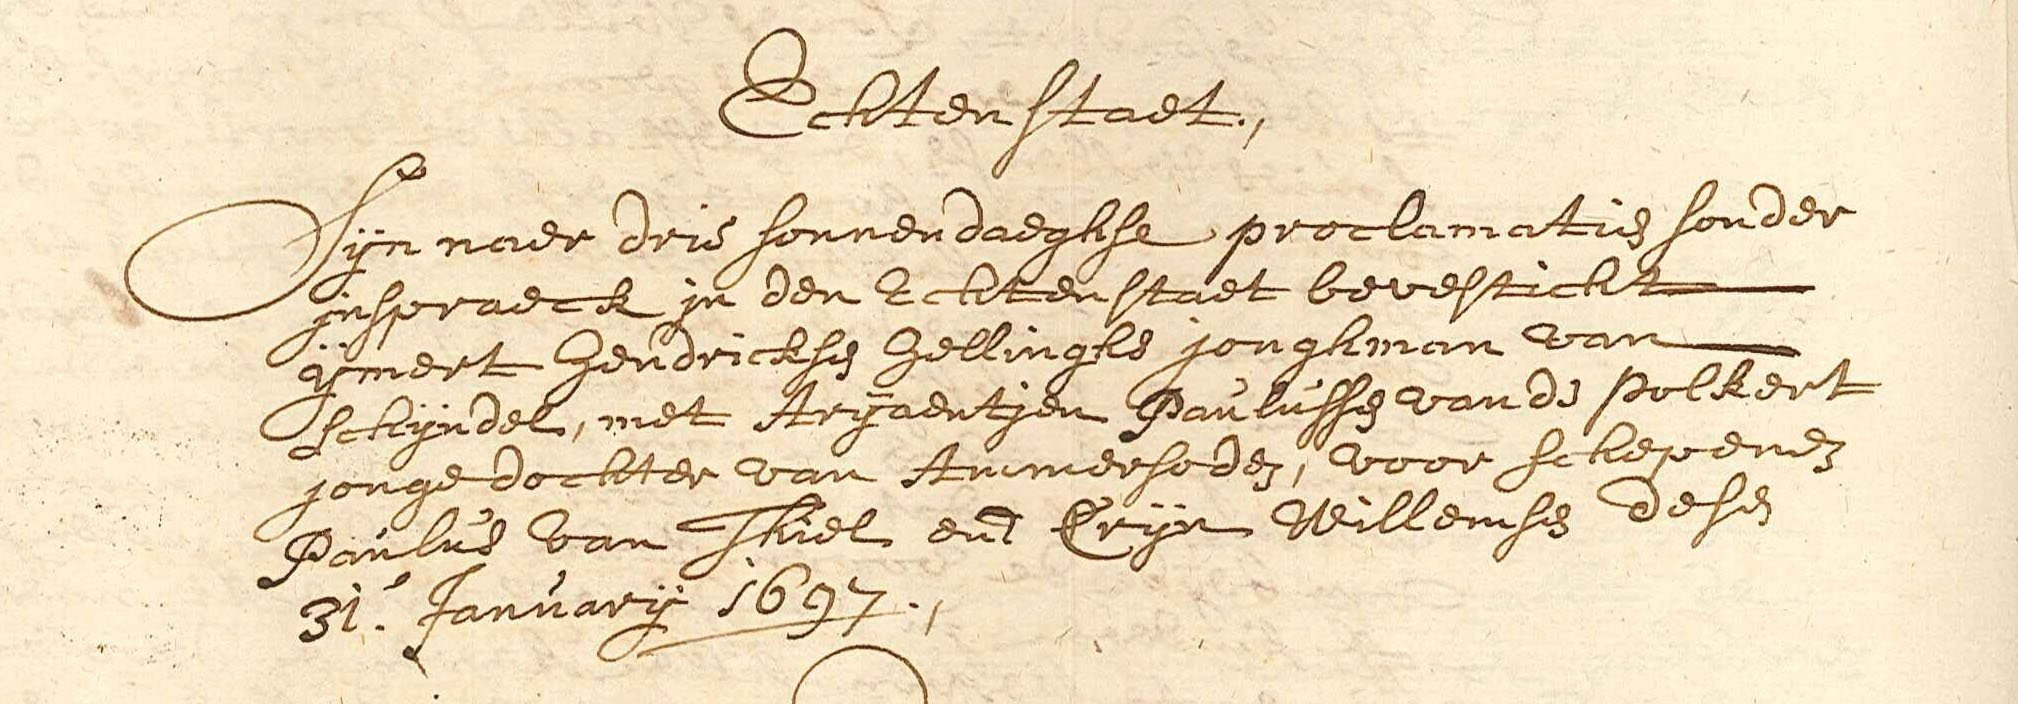 Echtenstaet.,
Sijn naer drie sonnendaeghse proclamaties sonder
jnspraeck jn den Echtenstaet bevesticht
ijmert Hendrickse Hellinghs jonghman van
Schijndel, met Arijaentjen Paulusse van de Polkert
jonge dochter van Ammersoden, voor schepenen
Paulus van Thiel end Crijn Willemse dese
31. January 1697.,